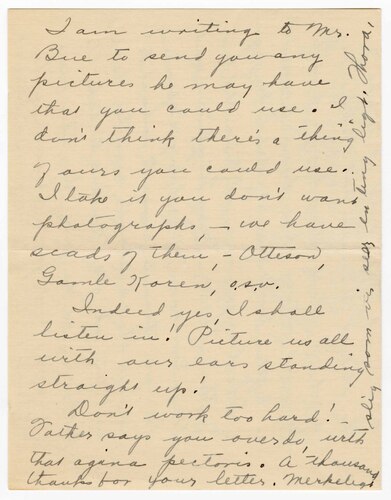 I am writing to Mr.
Bue to send you any
pictures he may have
that you could use. I
don't think there's a "thing"
of ours you could use.
I take it you don't want
photographs, – we have
scads of them, – Otteson,
Gamle Koren, o.s.v.
Indeed yes, I shall
listen in! Picture us all
with our ears standing
straight up!
Don't work too hard! –
Father says you overdo, with
that agina pectoris. A thousand
thanks for your letter. Merkeligt
slig som vi sees en ting ligt. Thora.